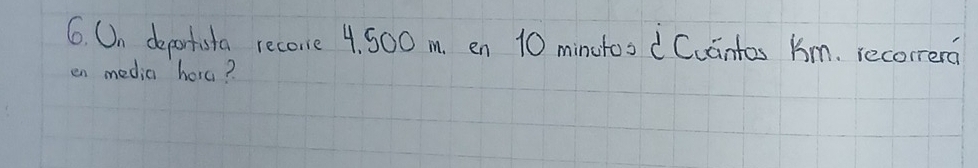 6. Un deportista recorre 4.500 m. en 10 minutos ¿Cuántos Km. recorrerá
en media hora?